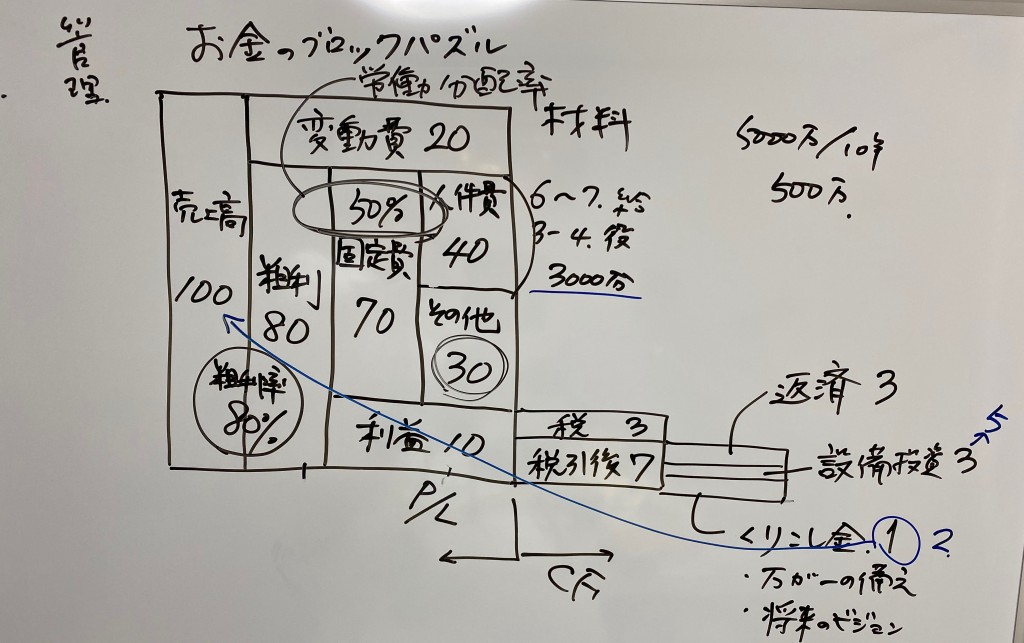 管理
お金のブロックパズル
労働分配率
変動費 20
材料
売上高
100
粗利
80
粗利率
80%
50%
固定費
70
人件費
40
その他
30
利益 10
6〜7. 給
3-4. 役
3000万
5000万/10年
500万.
税 3
税引後 7
返済 3
設備投資 3 → 5
くりこし金. 1 2
・万が一の備え
・将来のビジョン
P/L
CF